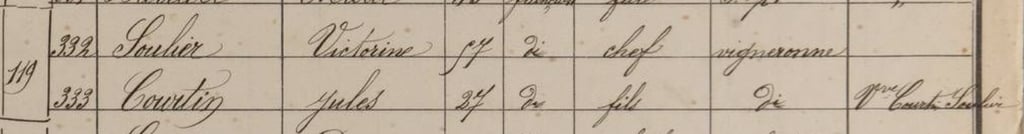 332 Soulier Victorine 57 di chef vigneronne
119
333 Courtin Jules 27 di fils di Vve Courtin Soulier